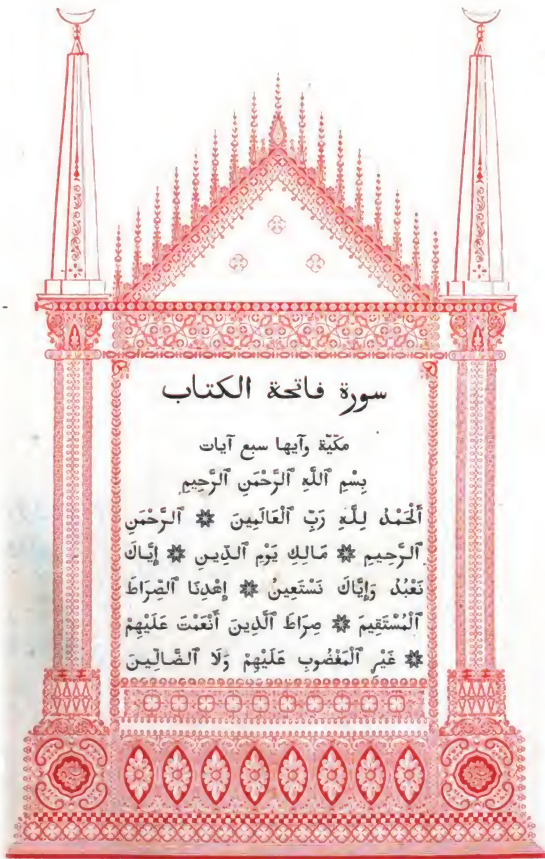 سورة فاتحة الكتاب
مكيّة وآيها سبع آيات
بِسْمِ ٱللَّهِ ٱلرَّحْمَنِ ٱلرَّحِيمِ
أَلْحَمْدُ لِلَّهِ رَبِّ ٱلْعَالَمِينَ ۞ ٱلرَّحْمَنِ
ٱلرَّحِيمِ ۞ مَالِكِ يَوْمِ ٱلدِّينِ ۞ إِيَّاكَ
نَعْبُدُ وَإِيَّاكَ نَسْتَعِينُ ۞ إِهْدِنَا ٱلصِّرَاطَ
ٱلْمُسْتَقِيمَ ۞ صِرَاطَ ٱلَّذِينَ أَنْعَمْتَ عَلَيْهِمْ
۞ غَيْرِ ٱلْمَغْضُوبِ عَلَيْهِمْ وَلَا ٱلضَّالِّينَ